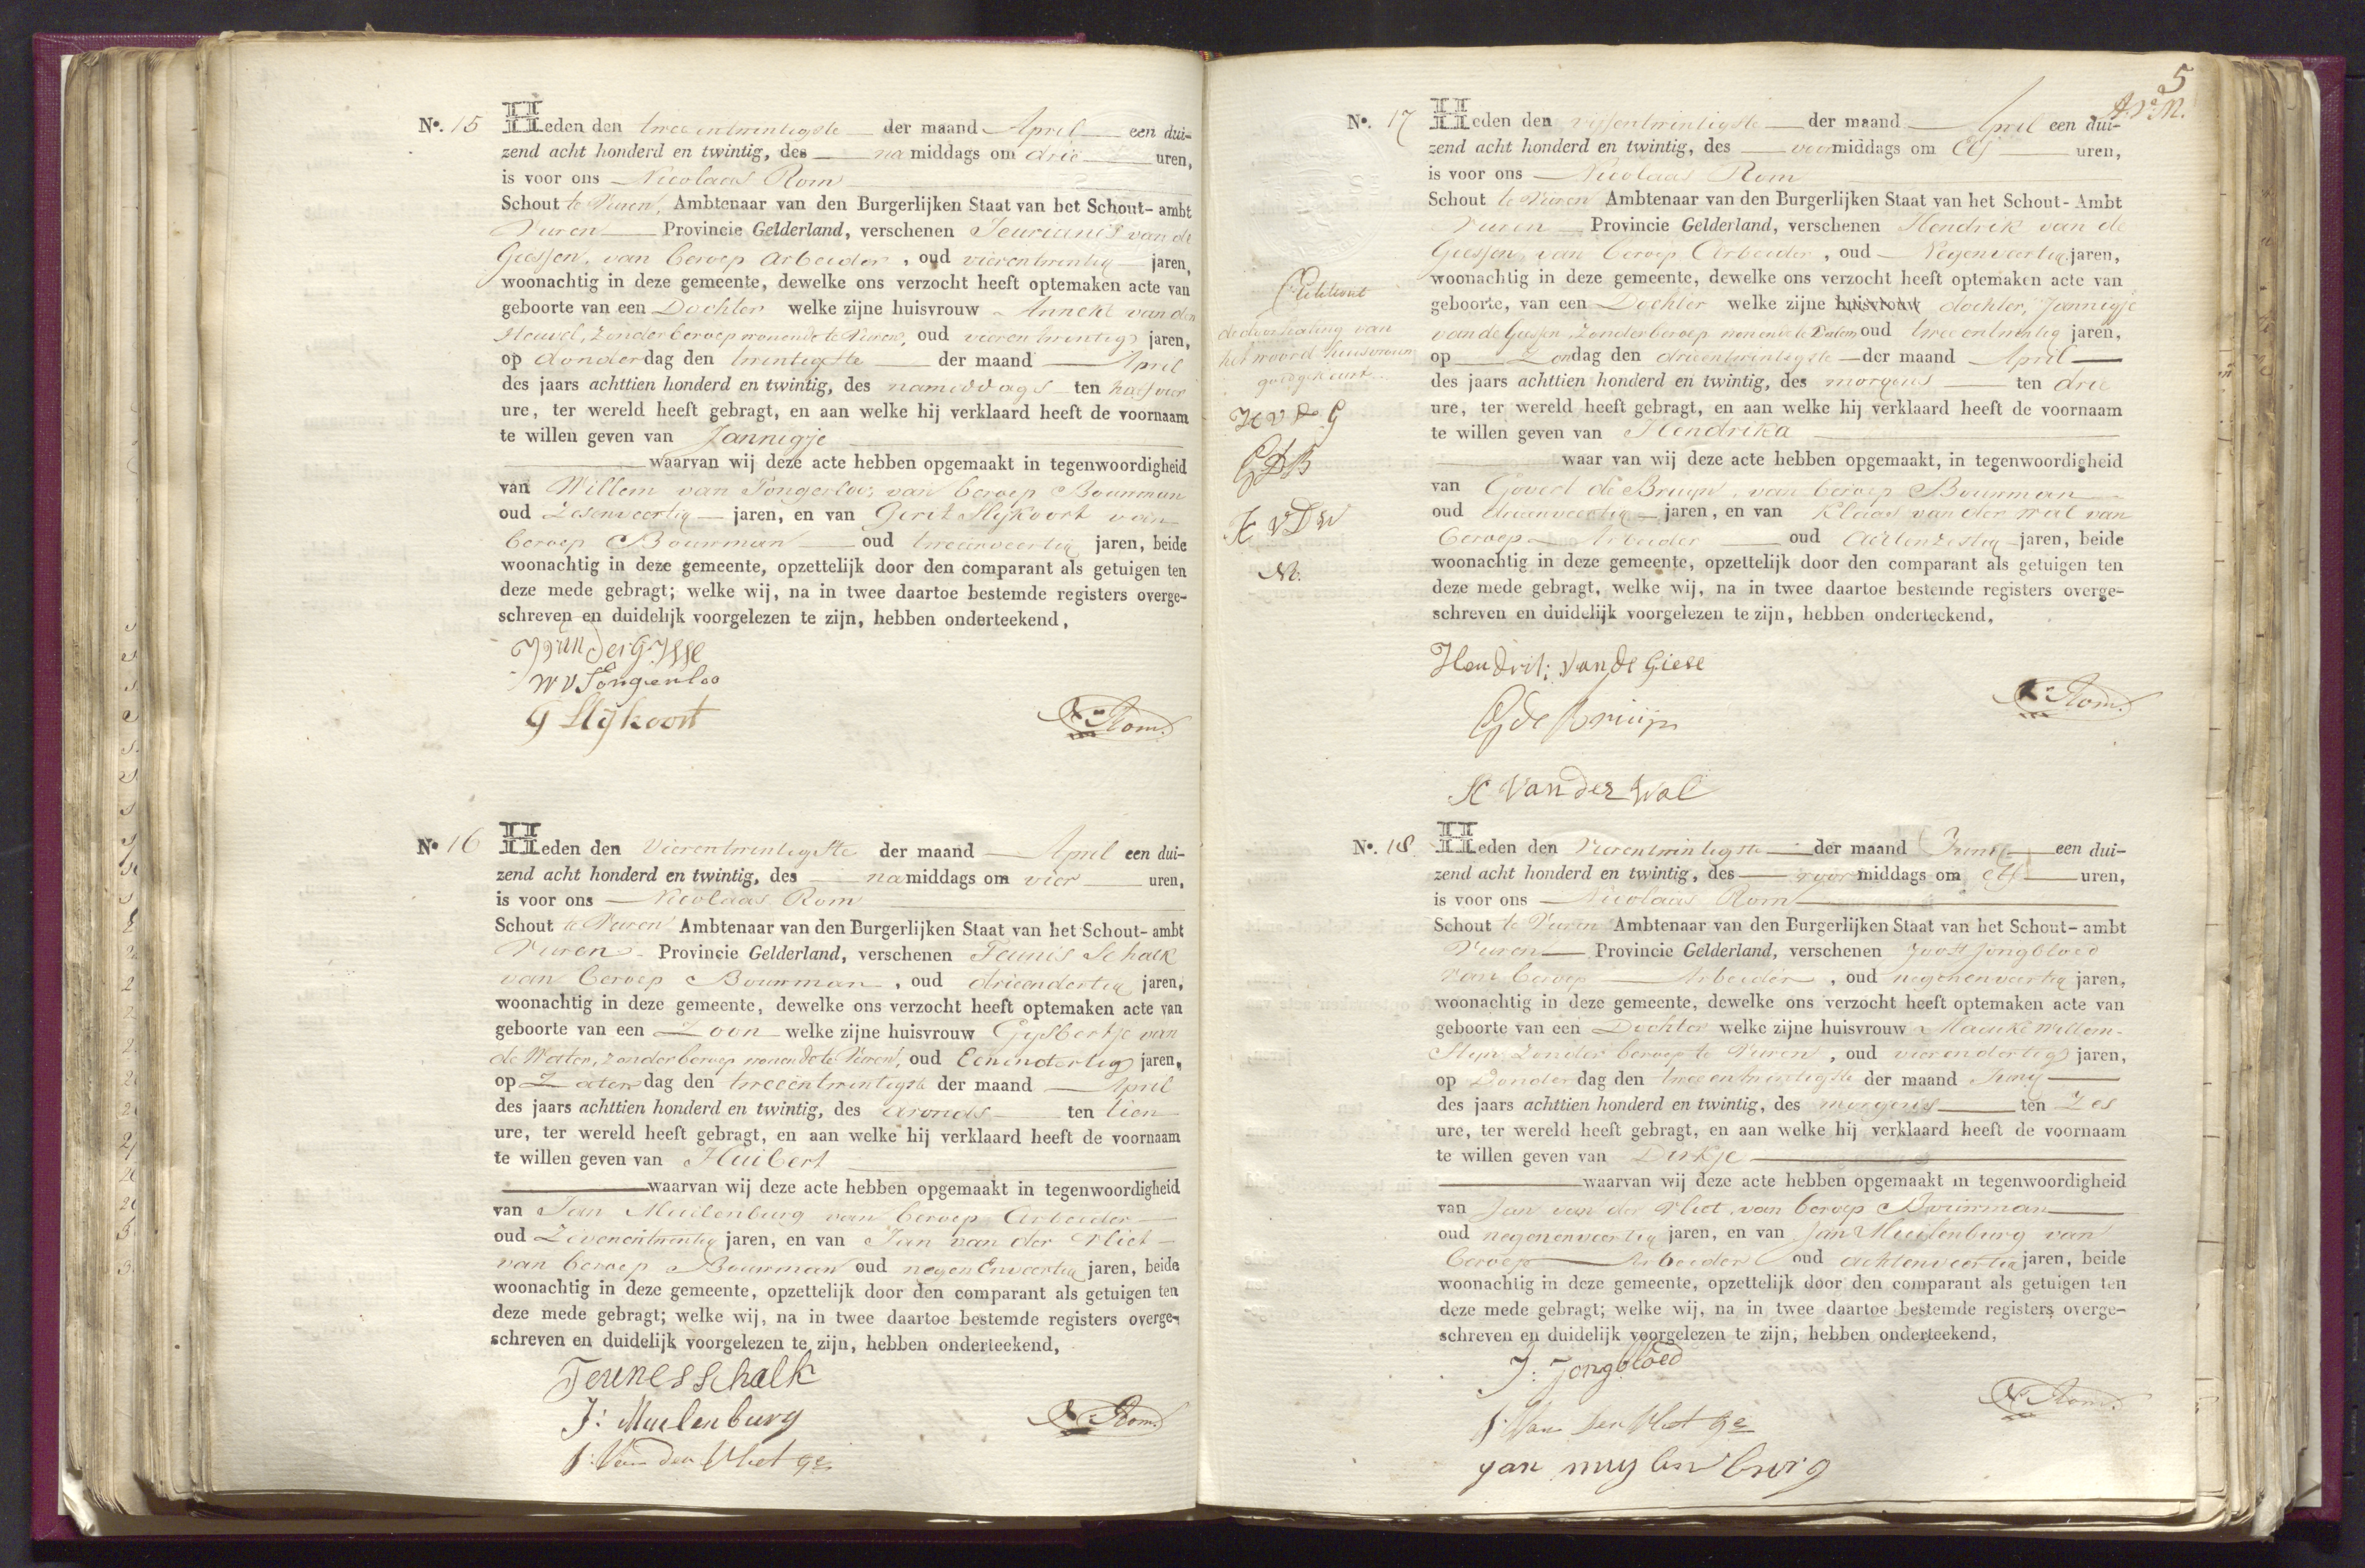 No. 15 Heeden den twee entwintigste der maand April een dui-
zend acht honderd en twintig, des namiddags om drie uren,
is voor ons Nicolaas Rom
Schout te Vuren, Ambtenaar van den Burgerlijken Staat van het Schout- ambt
Vuren Provincie Gelderland, verschenen Teurianis van de
Giessen, van beroep Arbeider, oud vierentwintig jaren,
woonachtig in deze gemeente, dewelke ons verzocht heeft optemaken acte van
geboorte van een Dochter welke zijne huisvrouw Anneke van den
Heuvel, zonder beroep wonende te Vuren, oud vieren twintig jaren,
op donderdag den twintigste der maand April
des jaars achttien honderd en twintig, des namiddags ten half vier
ure, ter wereld heeft gebragt, en aan welke hij verklaard heeft de voornaam
te willen geven van Jannigje
waarvan wij deze acte hebben opgemaakt in tegenwoordigheid
van Willem van Tongerloo, van beroep Bouwman
oud Zesenveertig jaren, en van Gerit Slijkoort van
beroep Bouwman oud tweeenveertig jaren, beide
woonachtig in deze gemeente, opzettelijk door den comparant als getuigen ten
deze mede gebragt; welke wij, na in twee daartoe bestemde registers overge-
schreven en duidelijk voorgelezen te zijn, hebben onderteekend,
W V Tongerloo
G Slijkoort
N: Rom.
No 16 Heeden den Vierentwintigste der maand April een dui-
zend acht honderd en twintig, des namiddags om vier uren,
is voor ons Nicolaas Rom
Schout te Vuren Ambtenaar van den Burgerlijken Staat van het Schout- ambt
Vuren Provincie Gelderland, verschenen Teunis Schalk
van beroep Bouwman, oud drieendertig jaren,
woonachtig in deze gemeente, dewelke ons verzocht heeft optemaken acte van
geboorte van een Zoon welke zijne huisvrouw Gijsbertje van
de Water, zonder beroep wonende te Vuren, oud Eenendertig jaren,
op Zaterdag den tweeentwintigste der maand April
des jaars achttien honderd en twintig, des avonds ten tien
ure, ter wereld heeft gebragt, en aan welke hij verklaard heeft de voornaam
te willen geven van Huibert
waarvan wij deze acte hebben opgemaakt in tegenwoordigheid
van Jan Muilenburg van beroep Arbeider
oud Zevenentwintig jaren, en van Jan van der Vliet
van beroep Bouwman oud negenEnveertig jaren, beide
woonachtig in deze gemeente, opzettelijk door den comparant als getuigen ten
deze mede gebragt; welke wij, na in twee daartoe bestemde registers overge-
schreven en duidelijk voorgelezen te zijn, hebben onderteekend,
Teunes schalk
J: Muelenburg
J: Van der Vliet
N: Rom.
5
No. 17 Heeden den vierentwintigste der maand April een dui-
zend acht honderd en twintig, des voormiddags om Elf uren,
is voor ons Nicolaas Rom
Schout te Vuren Ambtenaar van den Burgerlijken Staat van het Schout- Ambt
Vuren Provincie Gelderland, verschenen Hendrik van de
Giessen, van beroep Arbeider, oud Negenveertig jaren,
woonachtig in deze gemeente, dewelke ons verzocht heeft optemaken acte van
geboorte, van een Dochter welke zijne huisvrouw dochter, Jannigje
van de Giessen, zonder beroep wonende te Dalem oud twee entwintig jaren,
op Zondag den drieentwintigste der maand April
des jaars achttien honderd en twintig, des morgens ten drie
ure, ter wereld heeft gebragt, en aan welke hij verklaard heeft de voornaam
te willen geven van Hendrika
waar van wij deze acte hebben opgemaakt, in tegenwoordigheid
van Govert de Bruijn, van beroep Bouwman
oud drieenveertig jaren, en van Klaas van der wal van
beroep Arbeider oud Achtenzestig jaren, beide
woonachtig in deze gemeente, opzettelijk door den comparant als getuigen ten
deze mede gebragt, welke wij, na in twee daartoe bestemde registers overge-
schreven en duidelijk voorgelezen te zijn, hebben onderteekend,
de doorhaling van
het woord huisvrouw
goedgekeurt.
H v d G
G D B
K v D W
Hendrik van de Giese
G de Bruijn
K Van der Wal
N: Rom.
No. 18 Heeden den Vierentwintigste der maand Junij een dui-
zend acht honderd en twintig, des voormiddags om elf uren,
is voor ons Nicolaas Rom
Schout te Vuren Ambtenaar van den Burgerlijken Staat van het Schout- ambt
Vuren Provincie Gelderland, verschenen Joost Jongbloed
van beroep Arbeider, oud negenenveertig jaren,
woonachtig in deze gemeente, dewelke ons verzocht heeft optemaken acte van
geboorte van een Dochter welke zijne huisvrouw Maaike Willem-
Steyn zonder beroep te Vuren, oud vierendertig jaren,
op Donderdag den twee entwintigste der maand Junij
des jaars achttien honderd en twintig, des morgens ten Zes
ure, ter wereld heeft gebragt, en aan welke hij verklaard heeft de voornaam
te willen geven van Dirkje
waarvan wij deze acte hebben opgemaakt in tegenwoordigheid
van Jan van der Vliet, van beroep Bouwman
oud negenenveertig jaren, en van Jan Muilenburg van
beroep Arbeider oud achtenveertig jaren, beide
woonachtig in deze gemeente, opzettelijk door den comparant als getuigen ten
deze mede gebragt; welke wij, na in twee daartoe bestemde registers overge-
schreven en duidelijk voorgelezen te zijn, hebben onderteekend,
J: Jongbloed
J: Van der Vliet
Jan muylenburg
N: Rom.